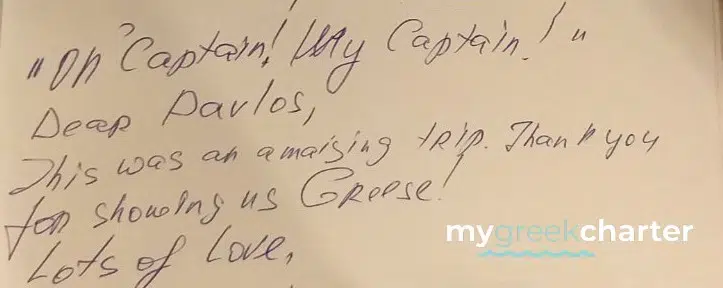 "Oh Captain! My Captain!"
Dear Pavlos,
This was an amaizing trip. Thank you
for showing us Greese!
Lots of Love,
mygreekcharter